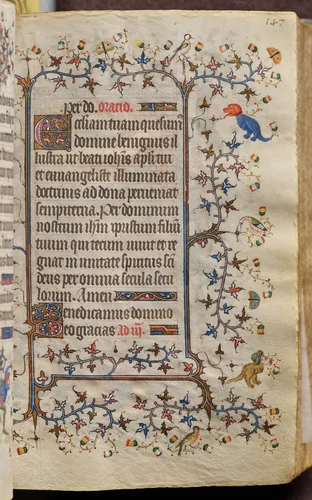 147
per do. oratio.
Ecclesiam tuam quesumus
domine benignus il
lustra ut beati iohis apostoli
et euuangeliste illuminata
doctrinis ad dona perueniat
sempiterna. Per dominum
nostrum ihm xpistum filium
tuum qui tecum uiuit et re
gnat in unitate spiritus sci
deus per omnia secula secu
lorum. Amen
Benedicamus domino
deo gracias Ad iij.